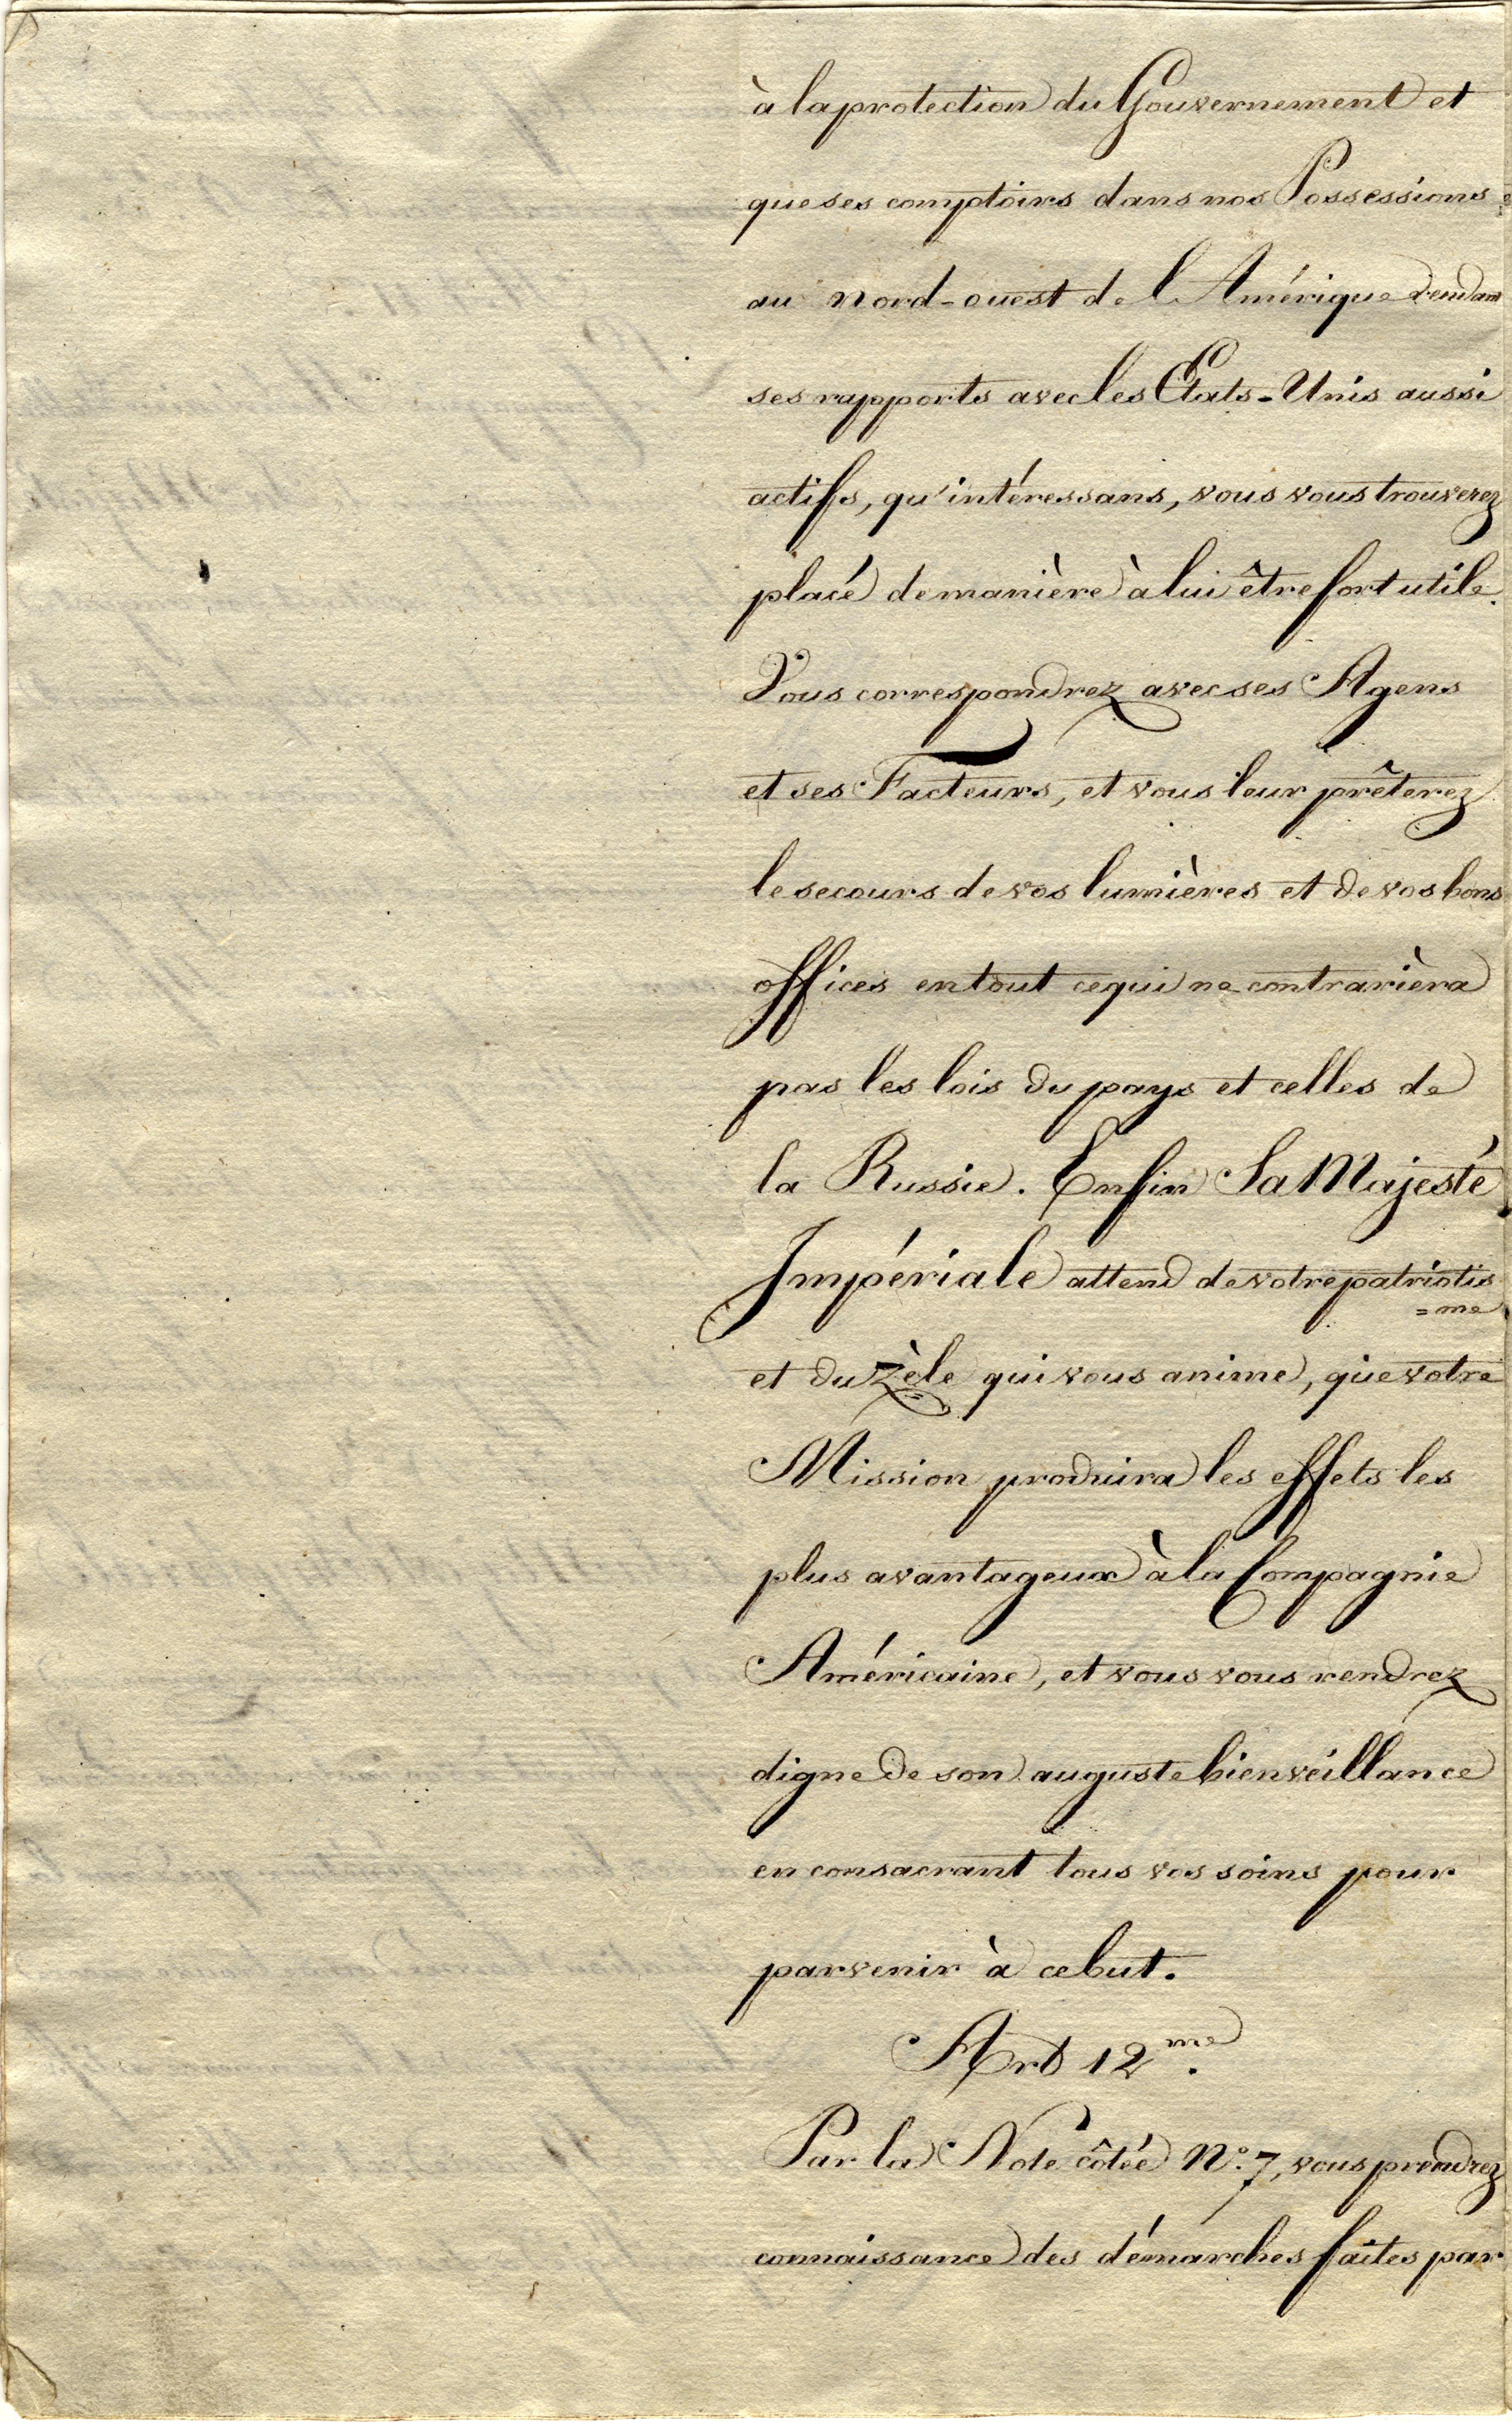 à la protection du Gouvernement et
que ses comptoirs dans nos Possessions
au nord-ouest de l'Amérique rendant
ses rapports avec les Etats-Unis aussi
actifs, qu'intéressans, vous vous trouverez
placé de manière à lui être fort utile.
Vous correspondrez avec ses Agens
et ses Facteurs, et vous leur prêterez
le secours de vos lumières et de vos bons
offices en tout ce qui ne contrarièra
pas les lois du pays et celles de
la Russie. Enfin Sa Majesté
Impériale attend de votre patriotis
=me
et du zèle qui vous anime, que votre
Mission produira les effets les
plus avantageux à la Compagnie
Américaine, et vous vous rendrez
digne de son auguste bienveillance
en consacrant tous vos soins pour
parvenir à ce but.
Art 12me.
Par la Note côtée No. 7, vous prendrez
connaissance des démarches faites par